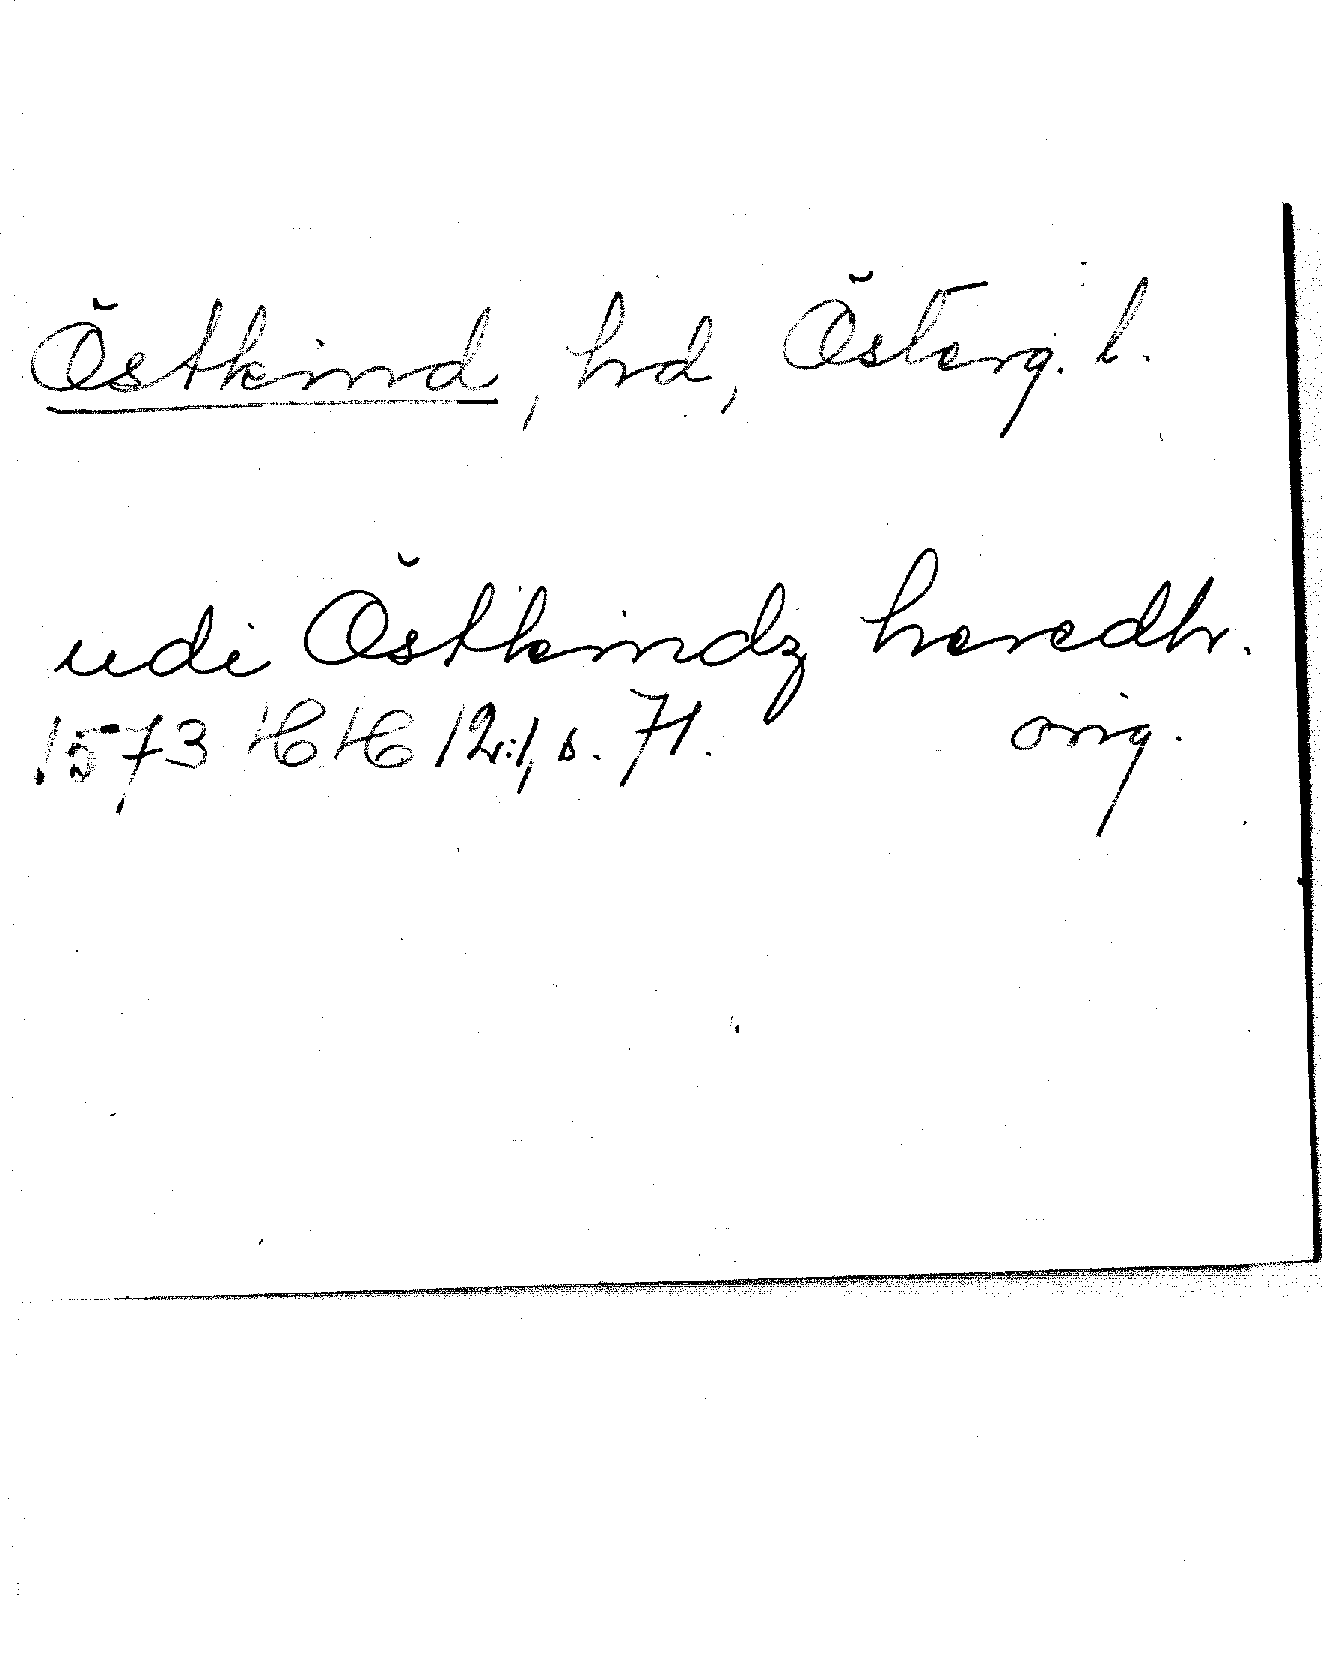 Östkind, hrd, Österg. l.
udi Östkindz heredhr.
1573 HH 12:1, s. 71. orig.